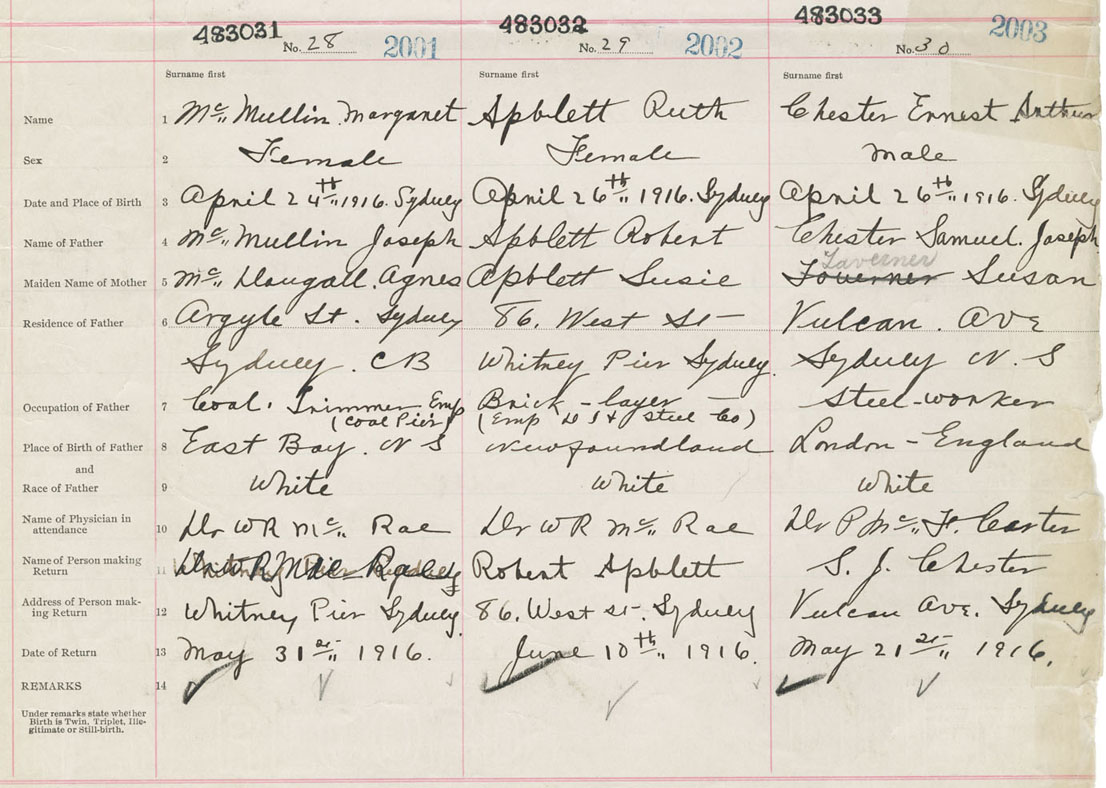 483031 483032 483033
No. 28 2001 No. 29 2002 No. 30 2003
Surname first Surname first Surname first
Name 1 Mc Mullin Margaret Apblett Ruth Chester Ernest Arthur
Sex 2 Female Female Male
Date and Place of Birth 3 April 24th 1916. Sydney April 26th 1916. Sydney April 26th 1916. Sydney
Name of Father 4 Mc Mullin Joseph Apblett Robert Chester Samuel. Joseph
Taverner
Maiden Name of Mother 5 Mc Dougall. Agnes Apblett Susie Touerner Susan
Residence of Father 6 Argyle St. Sydney 86. West St Vulcan. Ave
Sydney. CB Whitney Pier Sydney. Sydney N. S
Occupation of Father 7 Coal. Trimmer Emp Brick-layer Steel-worker
(Coal Pier) (Emp D I & Steel Co)
Place of Birth of Father 8 East Bay. N S Newfoundland London - England
and
Race of Father 9 White White White
Name of Physician in
attendance 10 Dr W R Mc Rae Dr W R Mc Rae Dr P Mc F. Carter
Name of Person making
Return 11 Robert Apblett S. J. Chester
Address of Person mak-
ing Return 12 Whitney Pier Sydney. 86. West St. Sydney Vulcan Ave. Sydney
Date of Return 13 May 31st 1916. June 10th 1916. May 21st 1916.
REMARKS 14
Under remarks state whether
Birth is Twin, Triplet, Ille-
gitimate or Still-birth.